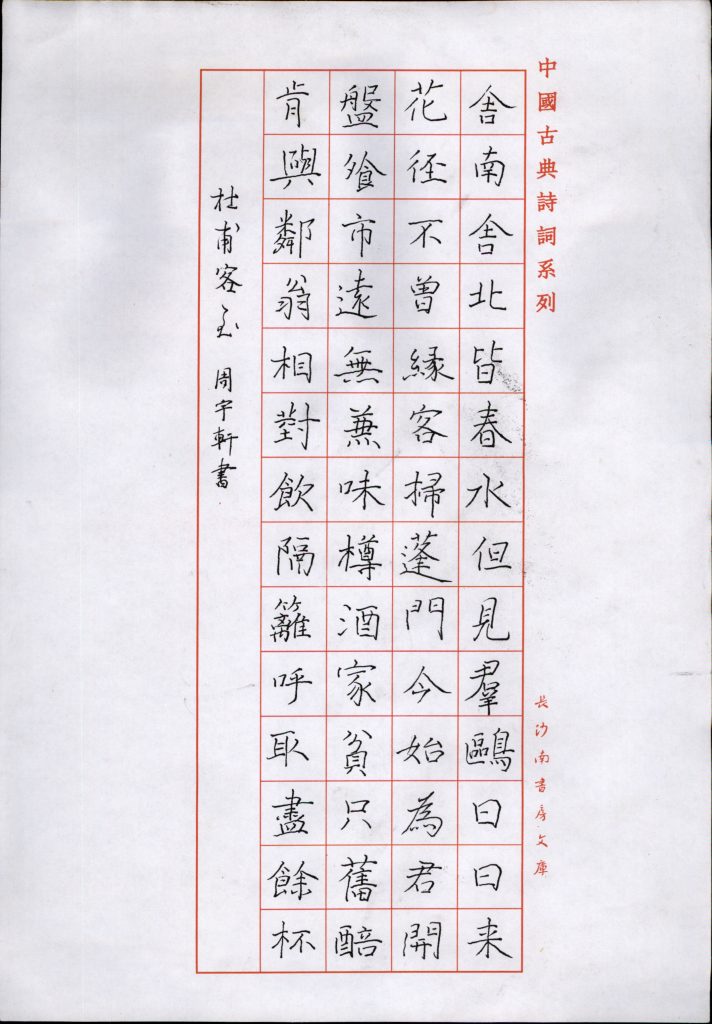 中國古典詩詞系列
舍南舍北皆春水但見羣鷗日日来
花徑不曾緣客掃蓬門今始為君開
盤飱市遠無蒹味樽酒家貧只舊醅
肯與鄰翁相對飲隔籬呼取盡餘杯
杜甫客至 周宇軒書
長沙南書房文庫